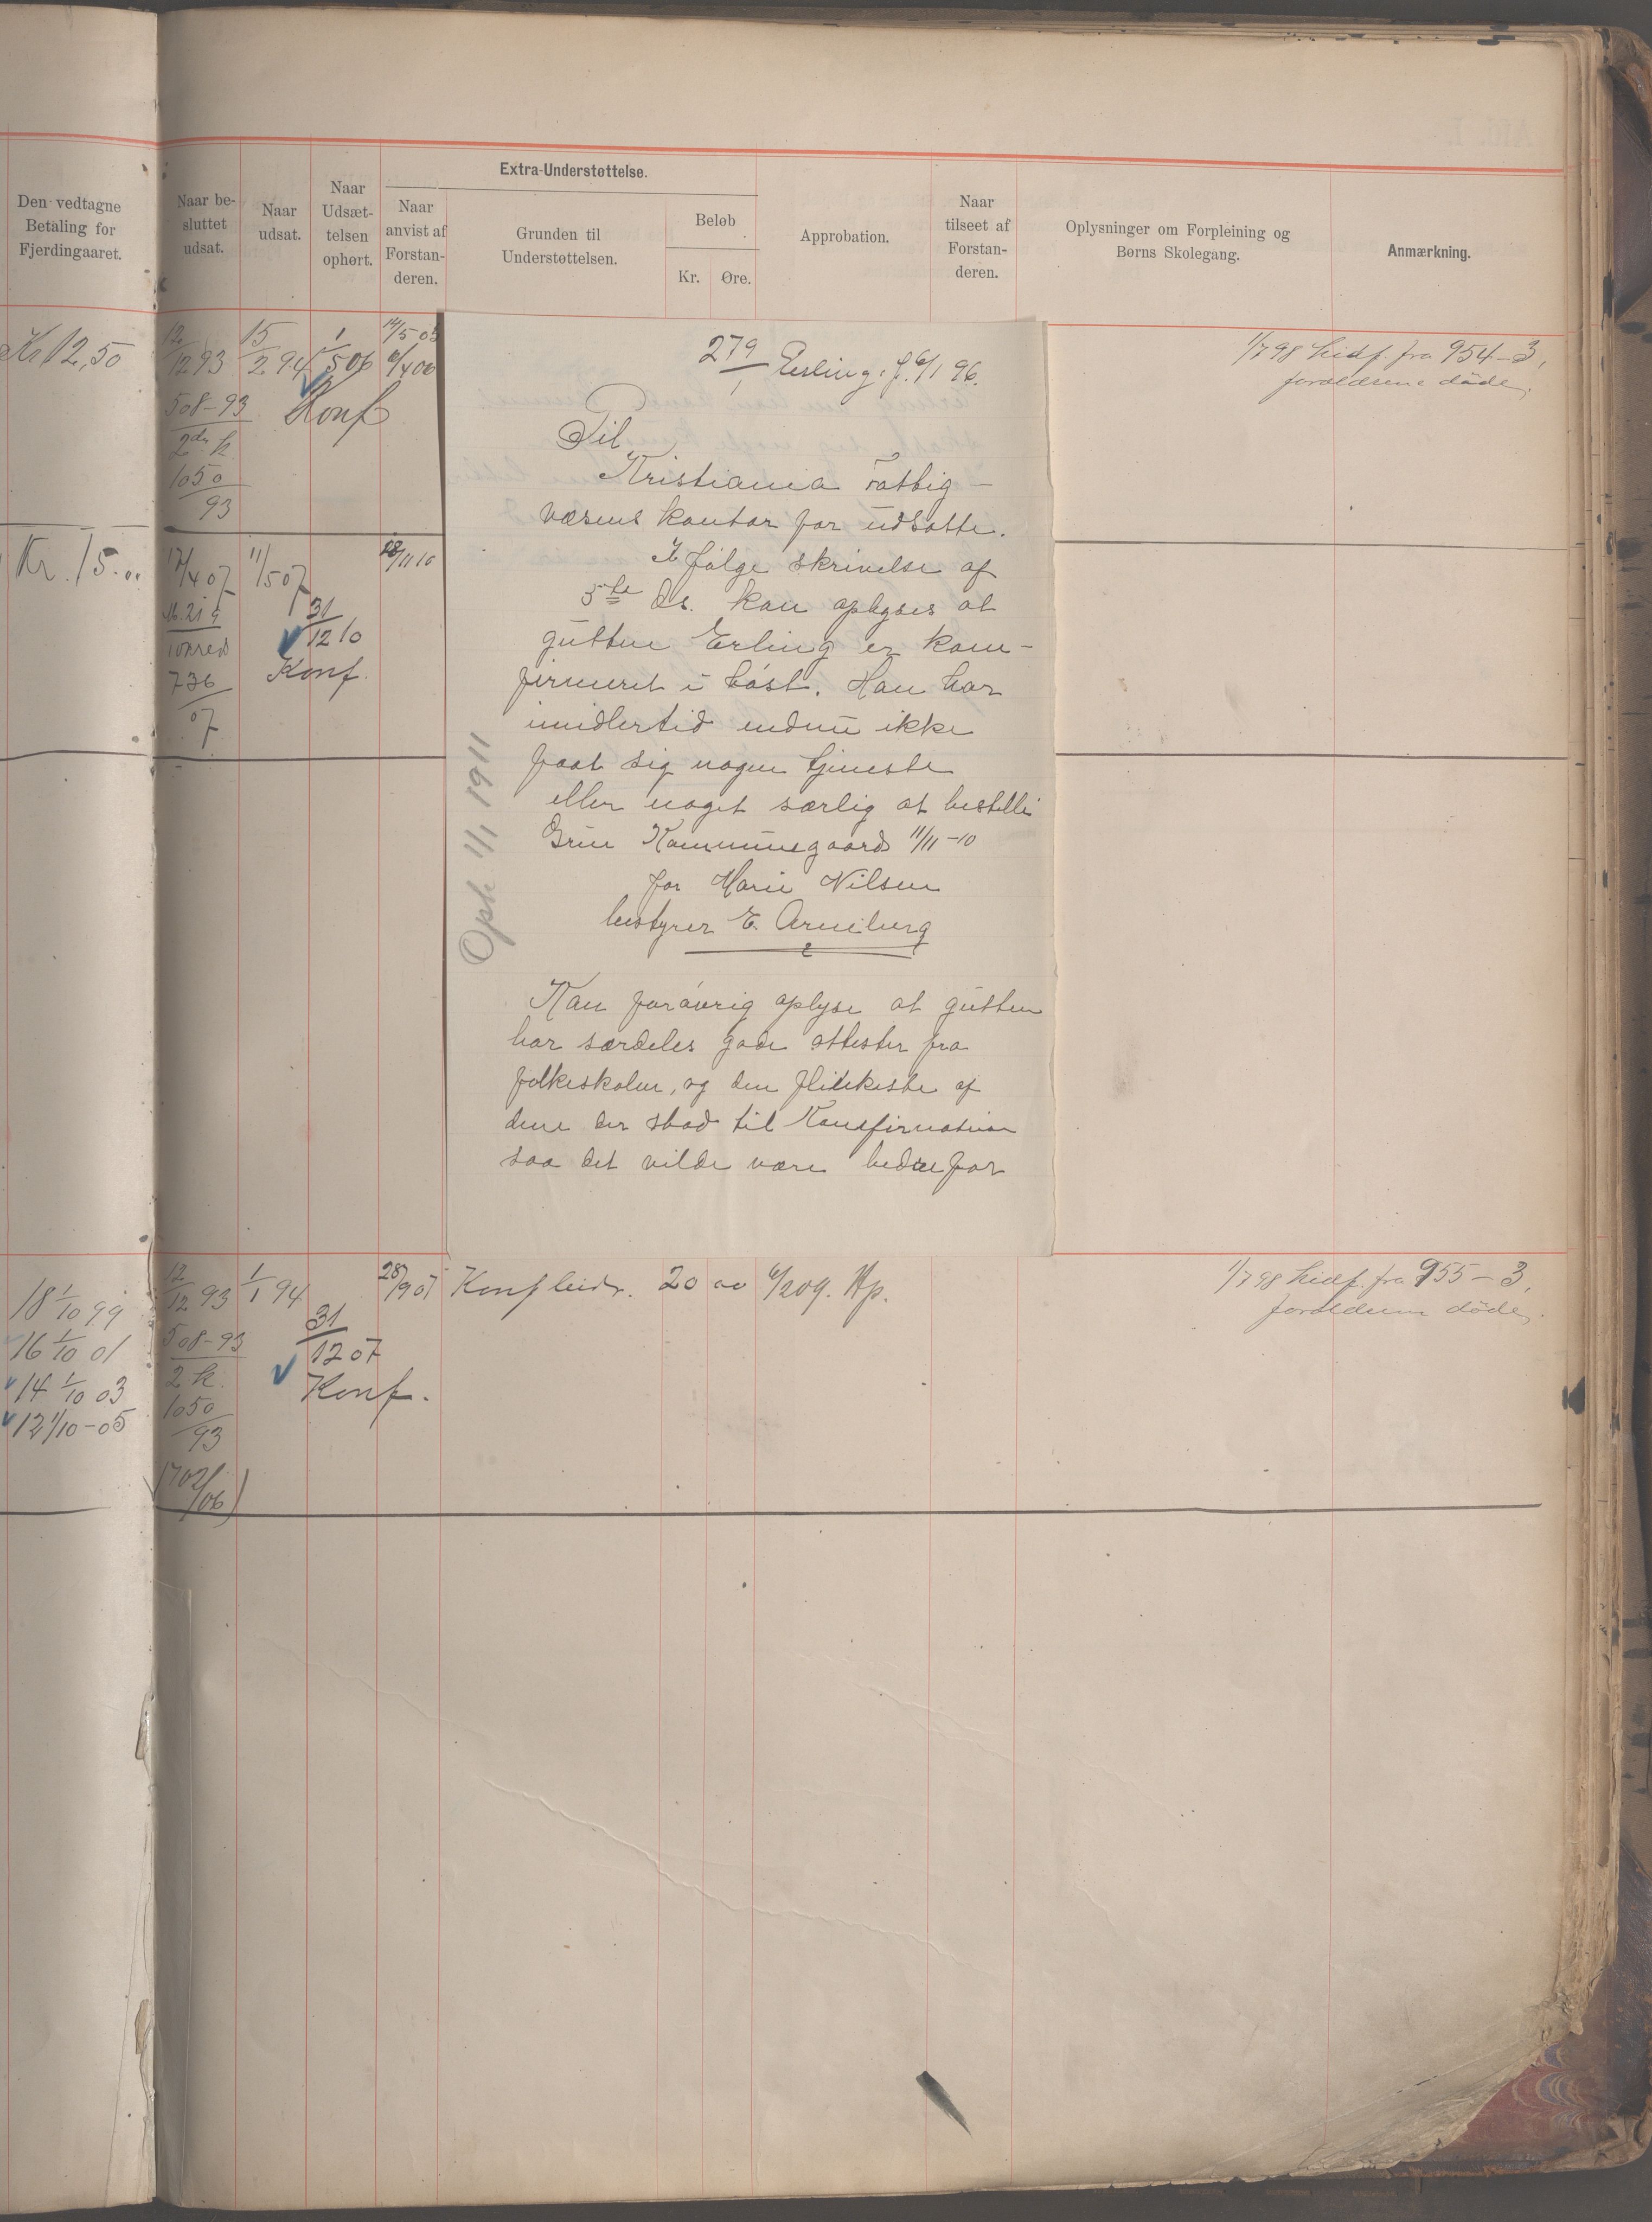 Den vedtagne
Betaling for
Fjerdingaaret.
Naar be-
sluttet
udsat.
Naar
udsat.
Naar
Udsæt-
telsen
ophørt.
Extra-Understøttelse.
Naar
anvist af
Forstan-
deren.
Grunden til
Understøttelsen.
Beløb
Kr.
Øre.
Approbation.
Naar
tilseet af
Forstan-
deren.
Oplysninger om Forpleining og
Børns Skolegang.
Anmærkning.
Kr 12,50
12/12 93
508-93
2den k
1050/93
15/2 94
1/5 06
Konf
14/5 05
6/4 06
1/7 98 hidf. fra 954-3,
forældrene døde.
279/1 Erling, f. 6/1 96.
Til
Kristiania fattig-
væsens kontor for udsatte.
Ifølge skrivelse af
5te ds. kan oplyses at
gutten Erling er kon-
firmeret i høst. Han har
imidlertid endnu ikke
faat sig nogen tjeneste
eller noget særlig at bestille
Grue Kommunegaard 11/11-10
for Marie Nilsen
bestyrer E. Arneberg
Kan forøvrig oplyse at gutten
har særdeles gode attester fra
folkeskolen, og den flinkeste af
dene der stod til Konfirmation
saa det vilde være bedre for
Oph 1/1 1911
Kr. 15.00
17/4 07
736/07
11/5 07
31/12 10
Konf.
28/11 10
18 1/10 99
16 1/10 01
14 1/10 03
12 1/10-05
12/12 93
508-93
2 k.
1050/93
(702/06)
1/1 94
31/12 07
Konf.
28/9 07 Konf klædr. 20 00 6/2 09. Hp.
1/7 98 hidf. fra 955-3,
forældrene døde.